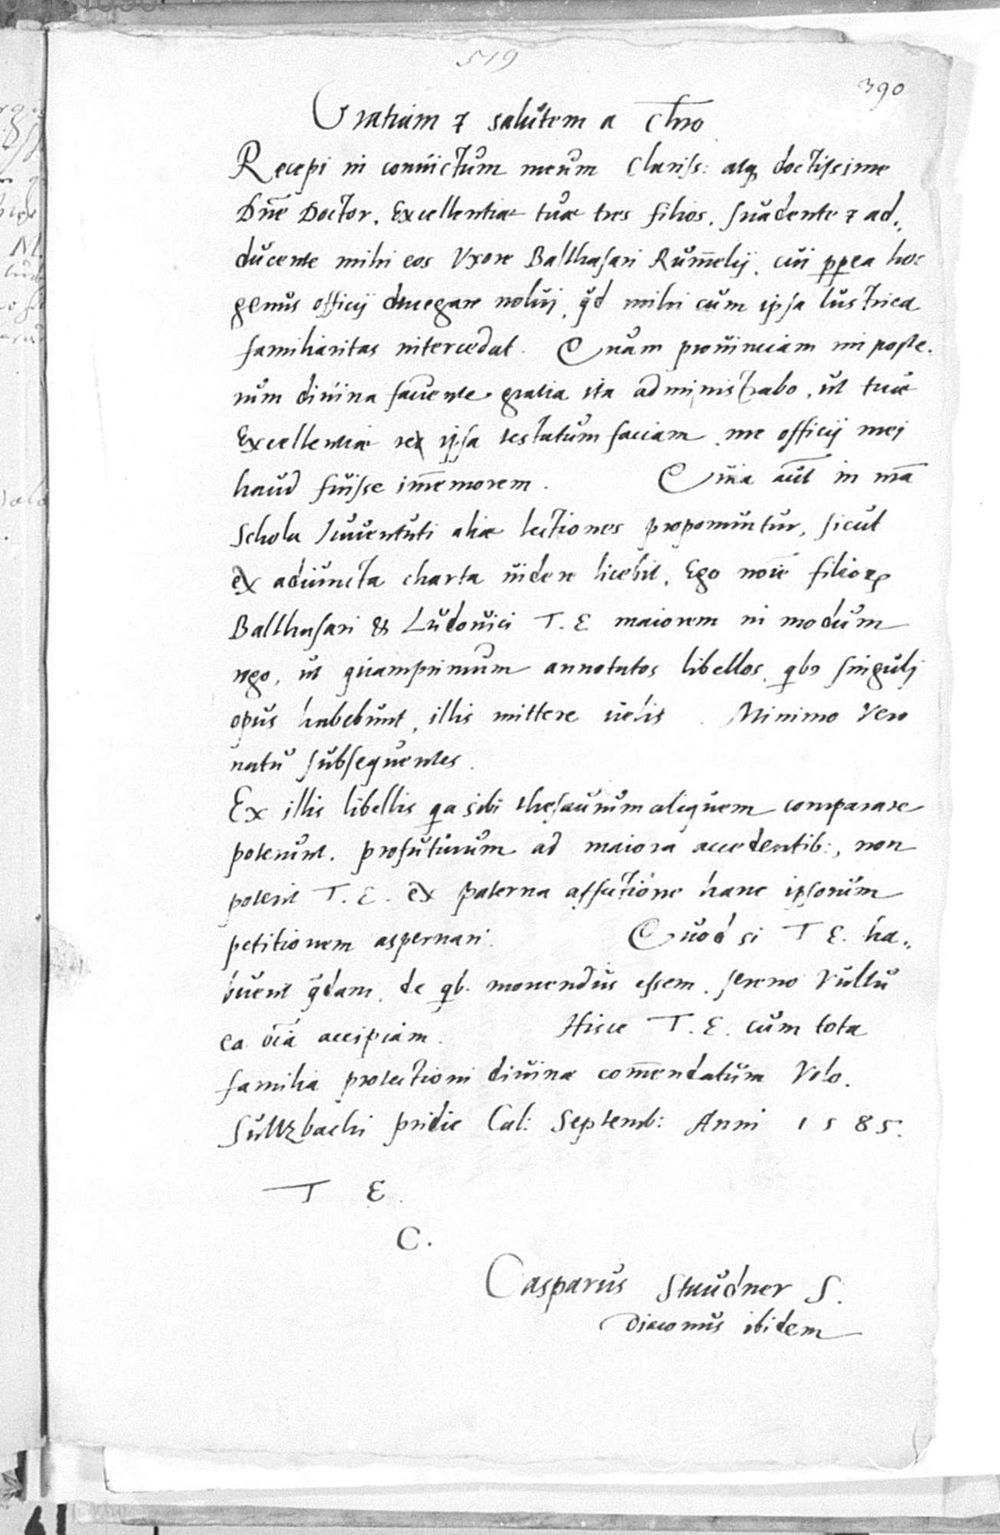 519
390
Gratiam & salutem a Chro
Recepi in conuictum meum Clariss: atq doctissime
Dne Doctor, Excellentiae tuae tres filios, suadente & ad„
ducente mihi eos Vxore Balthasari Rumelij, cui ppea hoc
genus officij denegare nolui, qd mihi cum ipsa lustrica
familiaritas intercedat. Quam prouinciam mi poste„
rum diuina fauente gratia ita administrabo, ut tuae
Excellentiae re ipsa testatum faciam, me officij mei
haud fuisse imemorem. Quia aut in nra
Schola Iuuentuti aliae lectiones proponuntur, sicut
ex adiuncta charta uidere licebit, Ego noie filior
Balthasari & Ludouici T. E maiorem in modum
rogo, ut quamprimum annotatos libellos, qbs singuli
opus habebunt, illis mittere uelis. Minimo Vero
natu subsequentes.
Ex illis libellis qa sibi thesaurum aliquem comparare
poterunt, profuturum ad maiora accedentib:, non
poterit T. E. ex paterna affectione hanc ipsorum
petitionem aspernari. Quod si T E. ha„
buerit qdam, de qb. monendus essem, sereno Vultu
ea oia accipiam. Hisce T. E. cum tota
familia protectioni diuinae comendatum Volo.
Sultzbachi pridie Cal: Septemb: Anni 1585.
T E.
C.
Casparus Staudner S.
Diaconus ibidem